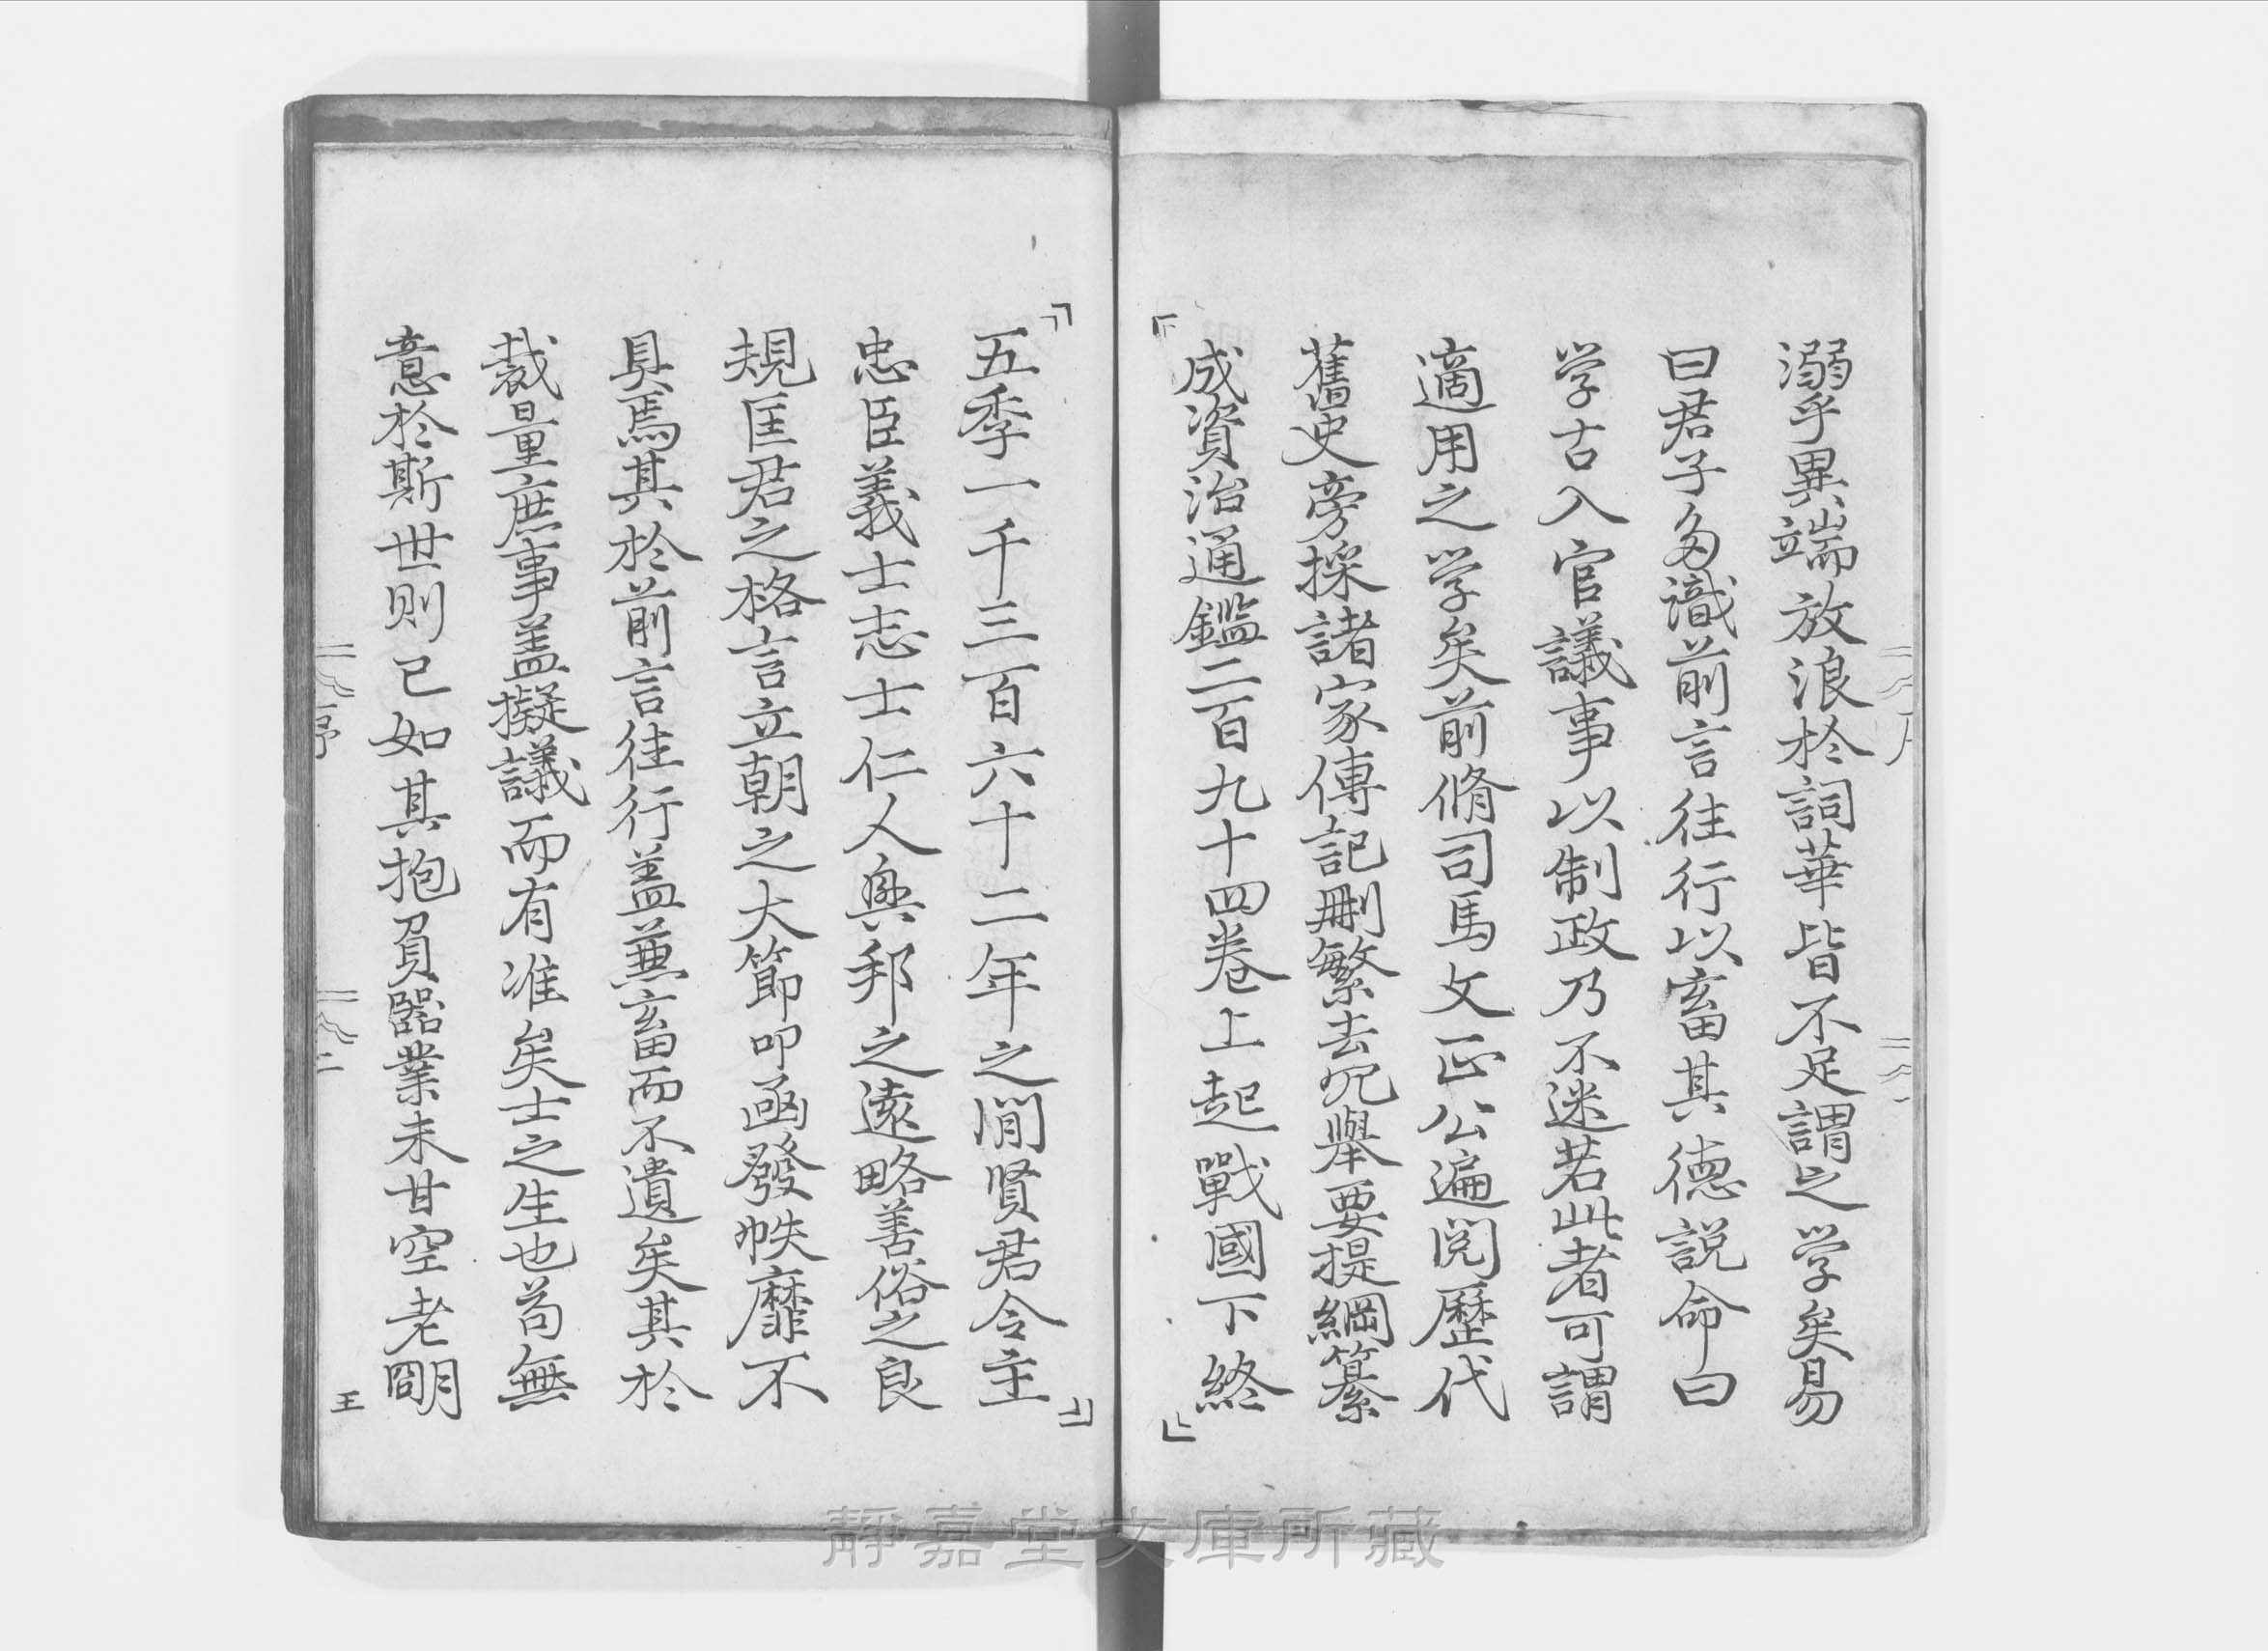 溺乎異端放浪於詞華皆不足謂之学矣易
曰君子多識前言往行以畜其德説命曰
学古入官議事以制政乃不迷若此者可謂
適用之学矣前脩司馬文正公遍閲歷代
舊史旁採諸家傳記刪繁去冗舉要提綱纂
成資治通鑑二百九十四卷上起戰國下終
五季一千三百六十二年之間賢君令主
忠臣義士志士仁人興邦之遠略善俗之良
規匡君之格言立朝之大節叩函發帙靡不
具焉其於前言往行盖兼畜而不遺矣其於
裁量庶事盖擬議而有准矣士之生也苟無
意於斯世則已如其抱負器業未甘空老明
序
二
王
靜嘉堂文庫所藏